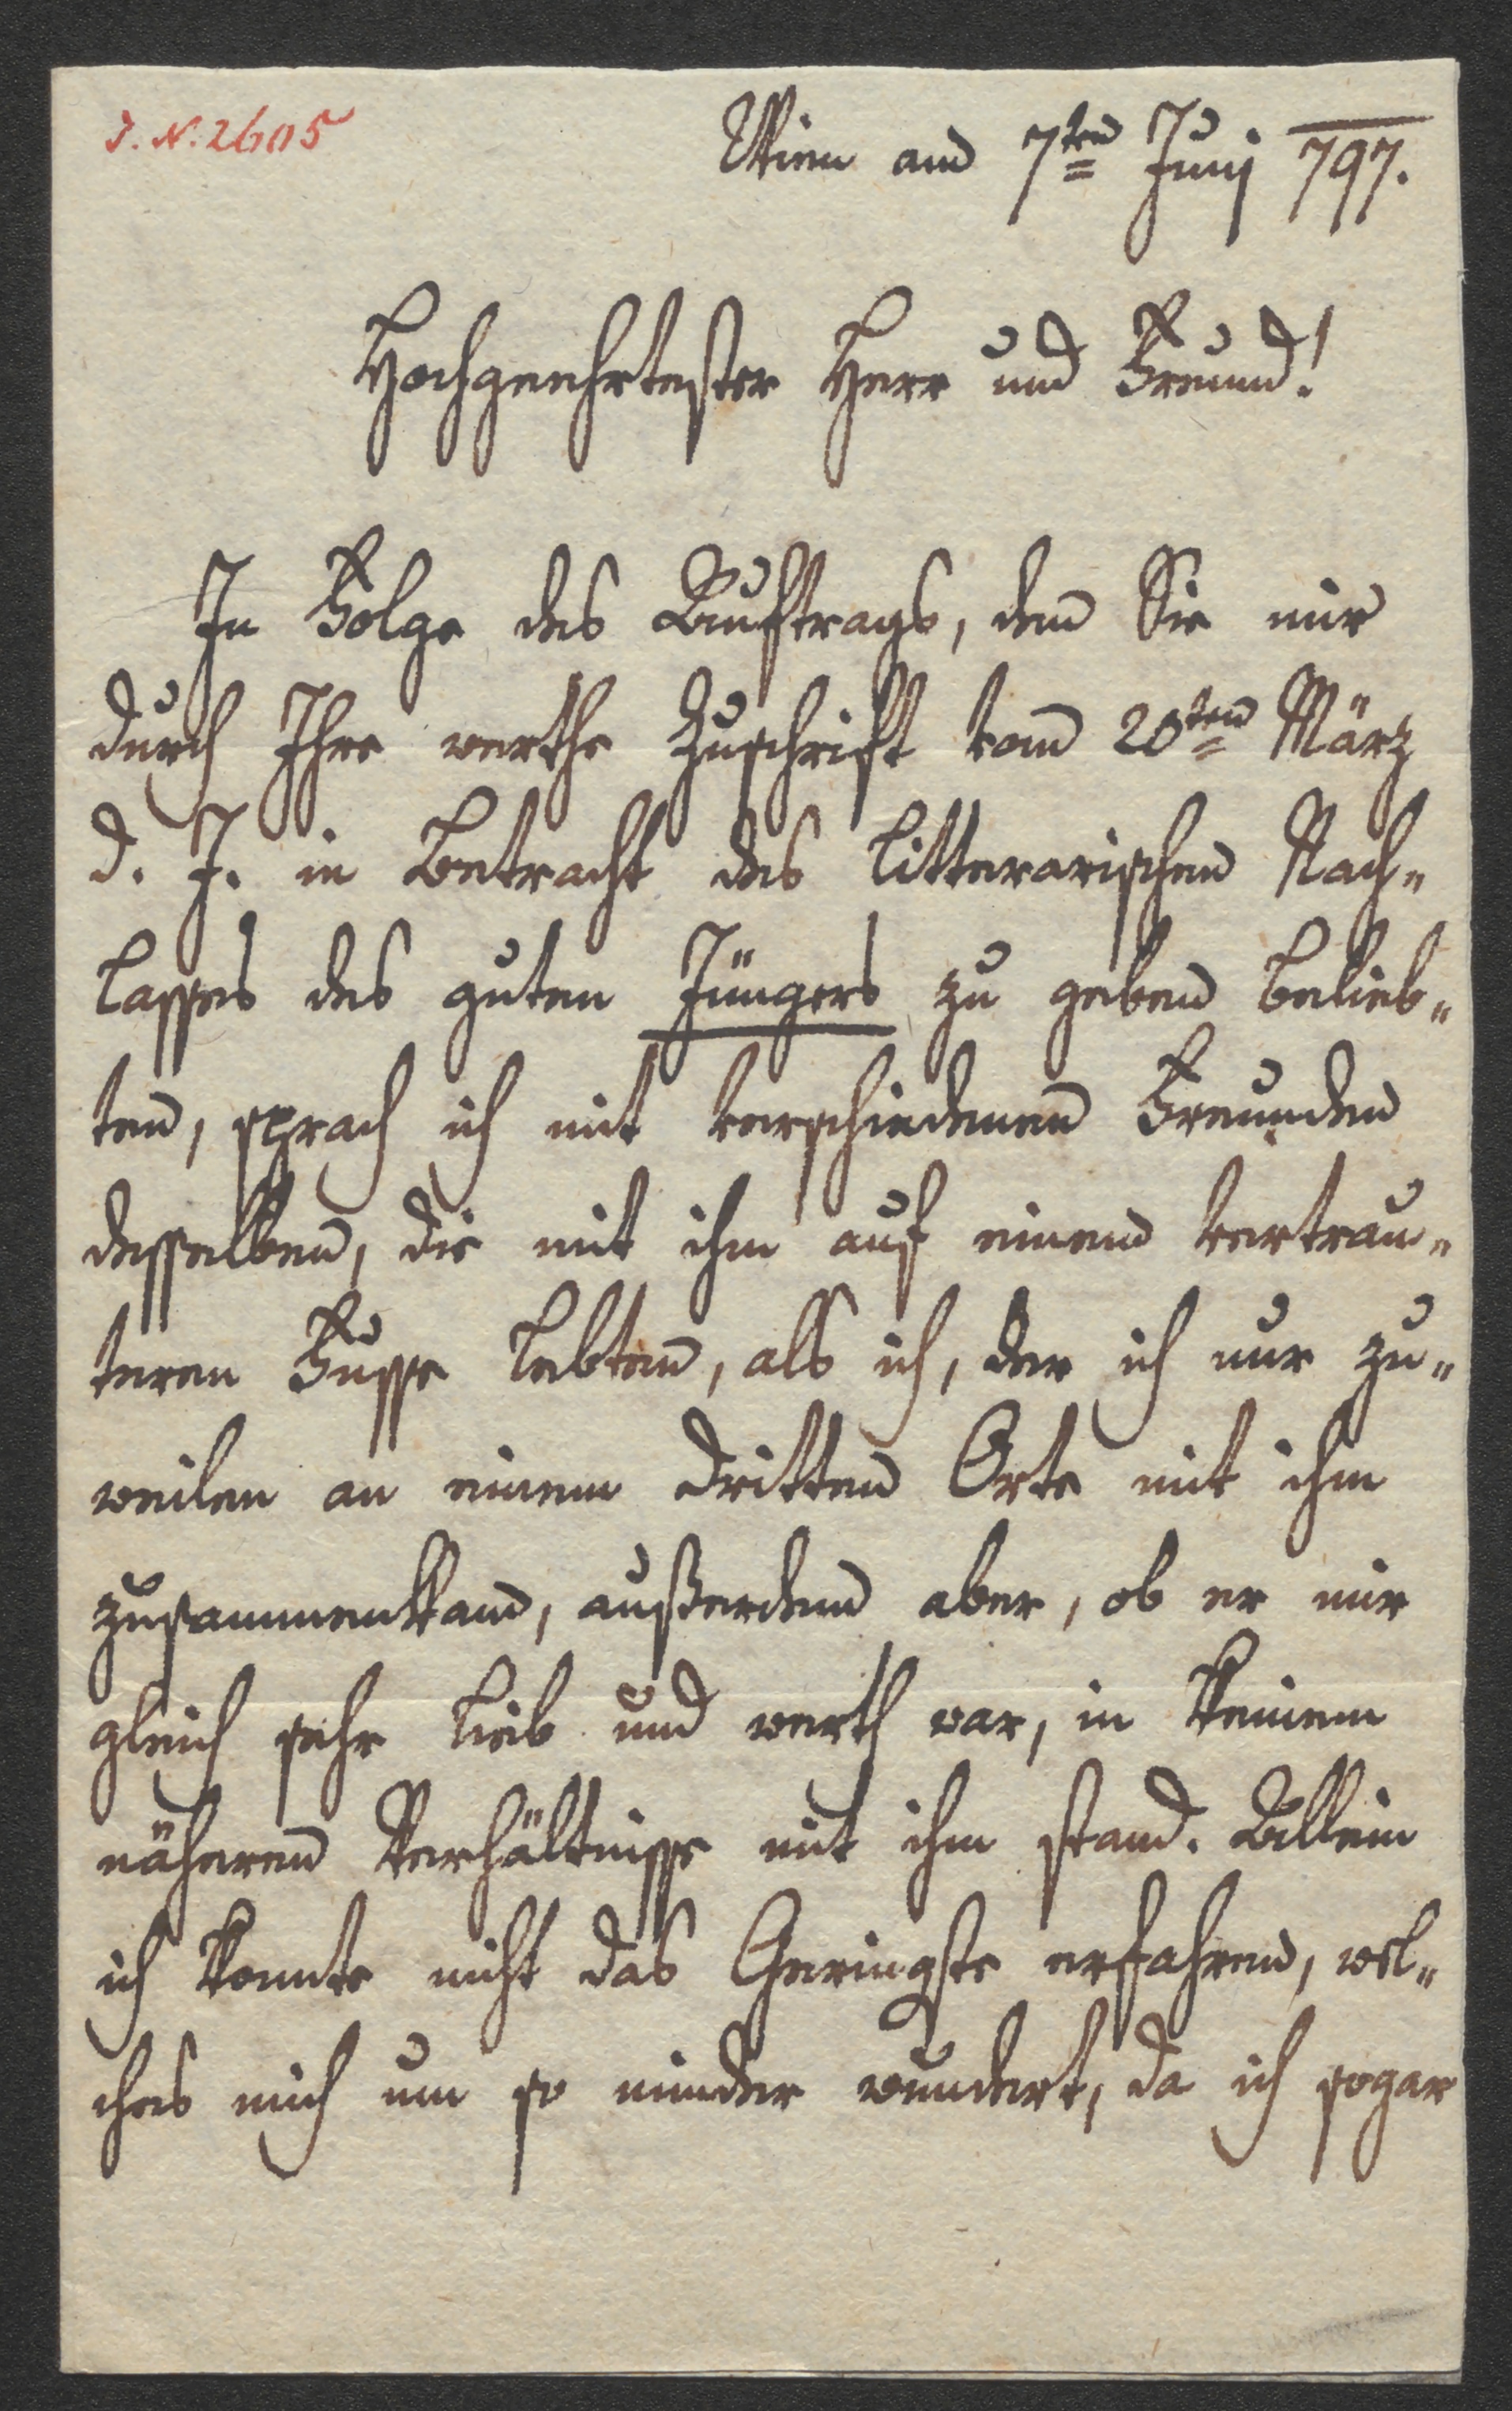 J. N. 2605
Wien am 7ten Junij 797.
Hochgeehrtester Herr und Freund!
In Folge des Auftrags, den Sie mir
durch Ihre werthe Zuschrift vom 20ten März
d. J. in Betracht des litterarischen Nach„
lasses des guten Jüngers zu geben belieb„
ten, sprach ich mit verschiedenen Freunden
desselben, die mit ihm auf einem vertrau„
teren Fusse lebten, als ich, der ich nur zu„
weilen an einem dritten Orte mit ihm
zusammenkam, außerdem aber, ob er mir
gleich sehr lieb und werth war, in keinem
näheren Verhältnisse mit ihm stand. Allein
ich konnte nicht das Geringste erfahren, wel„
ches mich um so minder wundert, da ich sogar